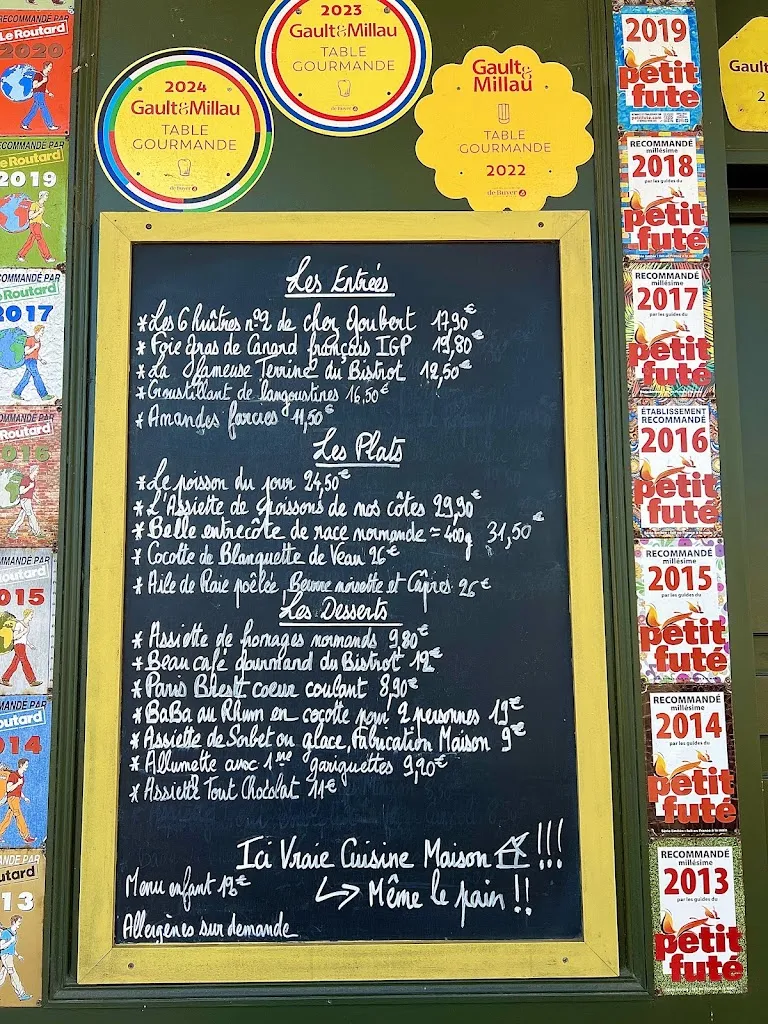 RECOMMANDÉ PAR
Le Routard
2020
RECOMMANDÉ PAR
Le Routard
2019
COMMANDÉ PAR
Routard
2017
OMMANDÉ PAR
Routard
016
MMANDÉ PAR
outard
015
MANDÉ PAR
outard
014
ANDÉ PAR
utard
13
2024
Gault&Millau
TABLE
GOURMANDE
de Buyer
2023
Gault&Millau
TABLE
GOURMANDE
de Buyer
Gault&
Millau
TABLE
GOURMANDE
2022
de Buyer
Les Entrées
*Les 6 huîtres n°2 de chez Joubert 17,90€
*Foie gras de Canard français IGP 19,80€
*La fameuse Terrine du Bistrot 12,50€
*Croustillant de langoustines 16,50€
*Amandes farcies 11,50€
Les Plats
*Le poisson du jour 24,50€
*L'Assiette de poissons de nos côtes 29,90€
*Belle entrecôte de race normande ≃ 400g 31,50€
*Cocotte de Blanquette de Veau 26€
*Aile de Raie poêlée Beurre noisette et Câpres 26€
Les Desserts
*Assiette de fromages normands 9,80€
*Beau café gourmand du Bistrot 12€
*Paris Brest coeur coulant 8,90€
*BaBa au Rhum en cocotte pour 2 personnes 19€
*Assiette de Sorbet ou glace, Fabrication Maison 9€
*Allumette avec gariguettes 9,90€
*Assiette Tout Chocolat 11€
Ici Vraie Cuisine Maison !!!
Menu enfant €
Même le pain !!
Allergènes sur demande
2019
petit
futé
RECOMMANDÉ
millésime
2018
par les guides du
petit
futé
RECOMMANDÉ
millésime
2017
par les guides du
petit
futé
ÉTABLISSEMENT
RECOMMANDÉ
2016
petit
futé
RECOMMANDÉ
millésime
2015
par les guides du
petit
futé
RECOMMANDÉ
millésime
2014
par les guides du
petit
futé
RECOMMANDÉ
millésime
2013
par les guides du
petit
futé
Gault
2